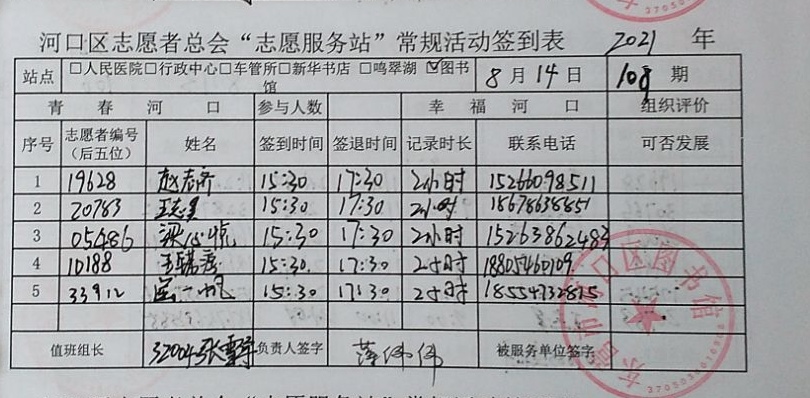 河口区志愿者总会“志愿服务站”常规活动签到表 2021 年
站点 □人民医院□行政中心□车管所□新华书店 □鸣翠湖 ☑图书馆 8月14日 108 期
青春河口 参与人数 幸福河口 组织评价
序号 志愿者编号（后五位） 姓名 签到时间 签退时间 记录时长 联系电话 可否发展
1 19628 赵志齐 15:30 17:30 2小时 15266098511
2 20783 15:30 17:30 2小时 18678638851
3 05486 梁心悦 15:30 17:30 2小时 15263862483
4 10188 15:30. 17:30 2小时 18805460109
5 33912 15:30 17:30 2小时 18554732815
值班组长 32004 张雪 负责人签字 薄伟伟 被服务单位签字
东营市河口区图书馆